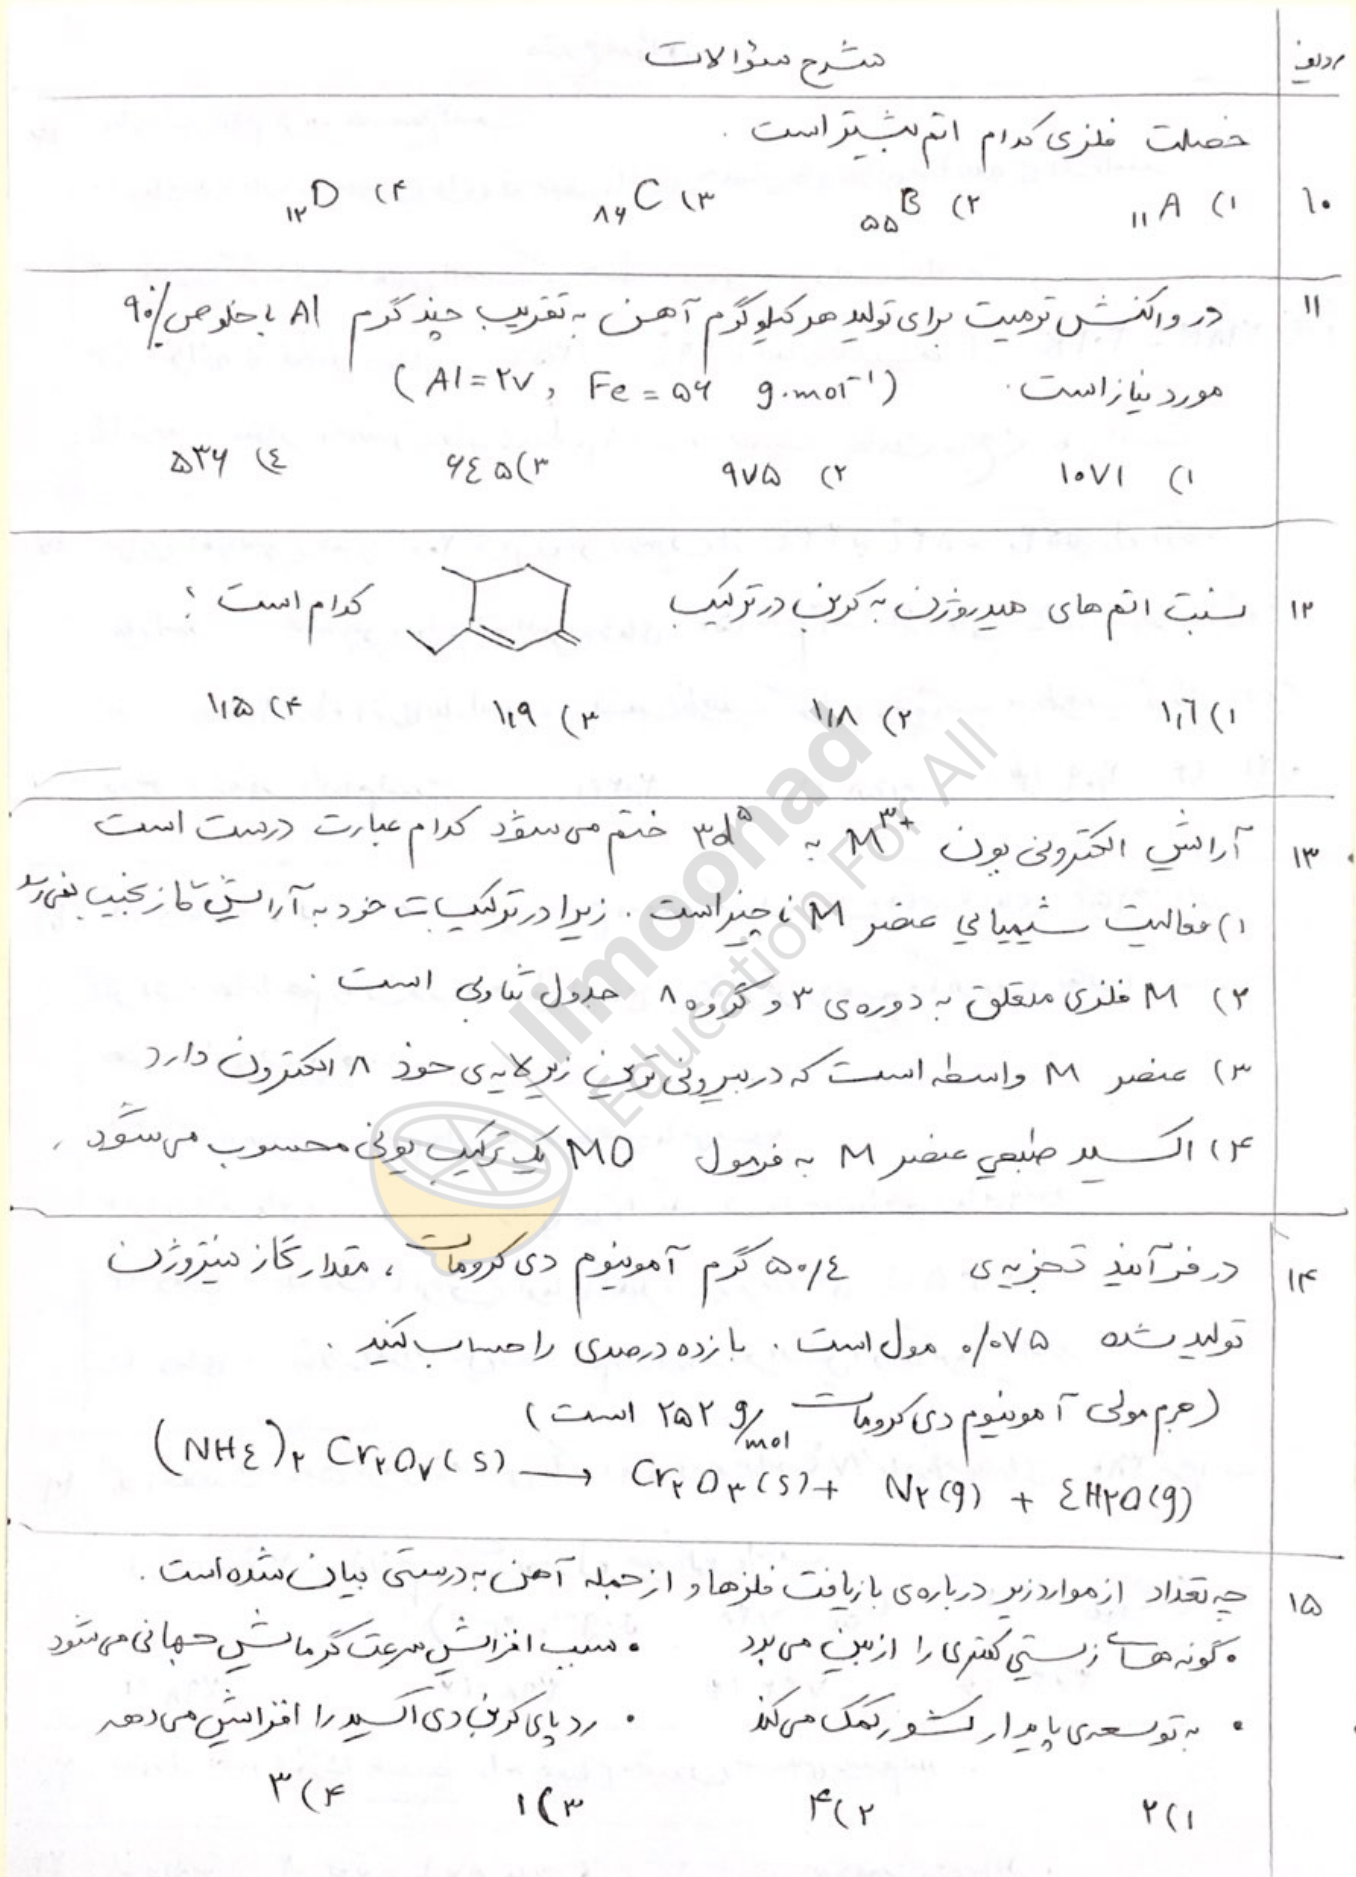 ردیف شرح سئوالات
خصلت فلزی کدام اتم بیشتر است .
۱۰ ۱) ₁₁A ۲) ₅₅B ۳) ₈₆C ۴) ₁₂D
۱۱ در واکنش ترمیت برای تولید هر کیلوگرم آهن به تقریب چند گرم Al با خلوص ۹۰٪
مورد نیاز است . (Al = ۲۷ , Fe = ۵۶ g.mol⁻¹)
۱) ۱۰۷۱ ۲) ۹۷۵ ۳) ۶٤۵ ٤) ۵۳۶
۱۲ نسبت اتم های هیدروژن به کربن در ترکیب کدام است ؟
۱) ۱,۶ ۲) ۱,۸ ۳) ۱,۹ ۴) ۱,۵
۱۳ آرایش الکترونی یون M³⁺ به ۳d⁵ ختم می شود کدام عبارت درست است
۱) فعالیت شیمیایی عنصر M ناچیز است . زیرا در ترکیبات خود به آرایش گاز نجیب نمی رسد
۲) M فلزی متعلق به دوره ی ۳ و گروه ۸ جدول تناوبی است .
۳) عنصر M واسطه است که در بیرونی ترین زیر لایه ی خود ۸ الکترون دارد
۴) اکسید طبیعی عنصر M به فرمول MO یک ترکیب یونی محسوب می شود .
۱۴ در فرآیند تجزیه ی ۵۰/٤ گرم آمونیوم دی کرومات ، مقدار گاز نیتروژن
تولید شده ۰/۰۷۵ مول است . بازده درصدی را حساب کنید .
(جرم مولی آمونیوم دی کرومات ۲۵۲ g/mol است )
(NH٤)۲ Cr۲O۷(s) ⟶ Cr۲O۳(s) + N۲(g) + ٤H۲O(g)
۱۵ چه تعداد از موارد زیر درباره ی بازیافت فلزها و از جمله آهن به درستی بیان شده است .
• گونه های زیستی کمتری را از بین می برد • سبب افزایش سرعت گرمایش جهانی می شود
• به توسعه ی پایدار کشور کمک می کند • رد پای کربن دی اکسید را افزایش می دهد
۱) ۲ ۲) ۴ ۳) ۱ ۴) ۳
limoonad
Education For All